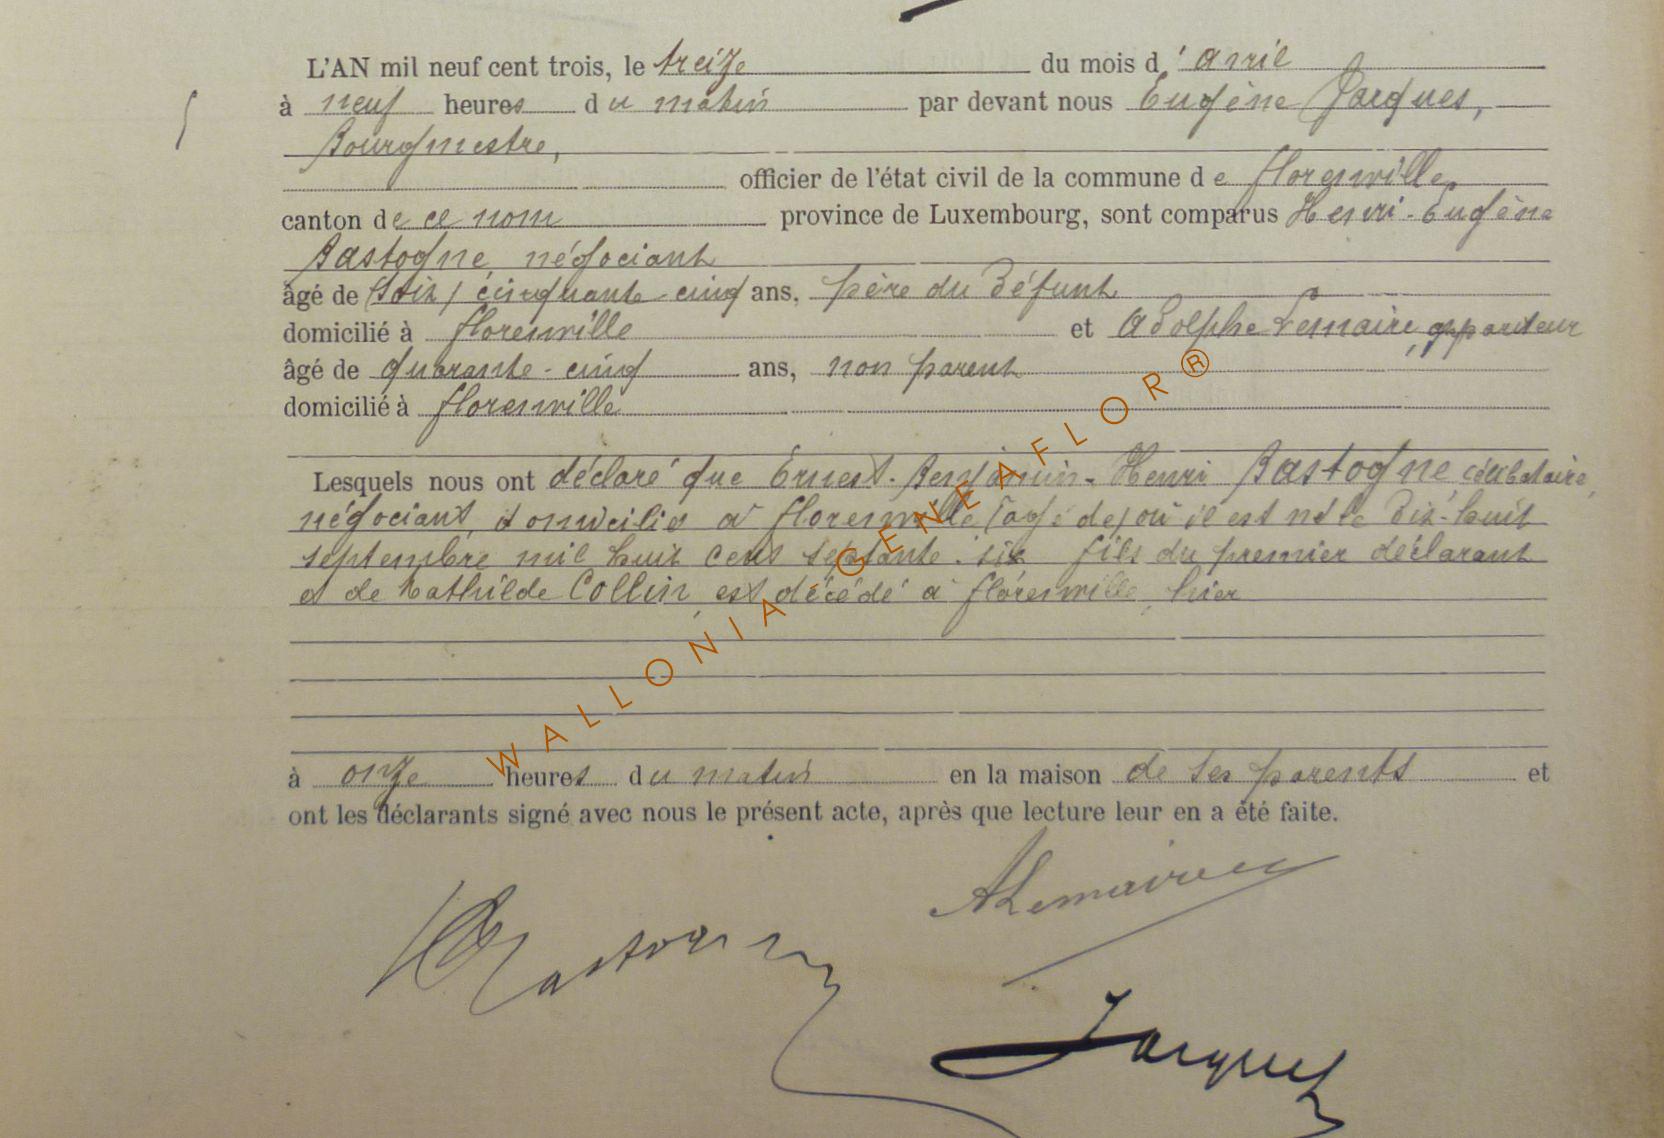 L'AN mil neuf cent trois, le treize du mois d'avril
à neuf heures du matin par devant nous Eugène Jacques,
Bourgmestre,
officier de l'état civil de la commune de Florenville,
canton de ce nom province de Luxembourg, sont comparus Henri-Eugène
Bastogne négociant
âgé de (soix) cinquante-cinq ans, père du défunt
domicilié à Florenville et Adolphe Lemaire, appariteur
âgé de quarante-cinq ans, non parent
domicilié à Florenville
Lesquels nous ont déclaré que Ernest-Benjamin-Henri Bastogne célibataire,
négociant, domicilié à Florenville (âgé de) où il est né le dix-huit
septembre mil huit cent septante-six fils du premier déclarant
et de Mathilde Collin, est décédé à Florenville, hier
à onze heures du matin en la maison de ses parents et
ont les déclarants signé avec nous le présent acte, après que lecture leur en a été faite.
ALemaire
HBastogne
Jacques
WALLONIA-GENEAFLOR®